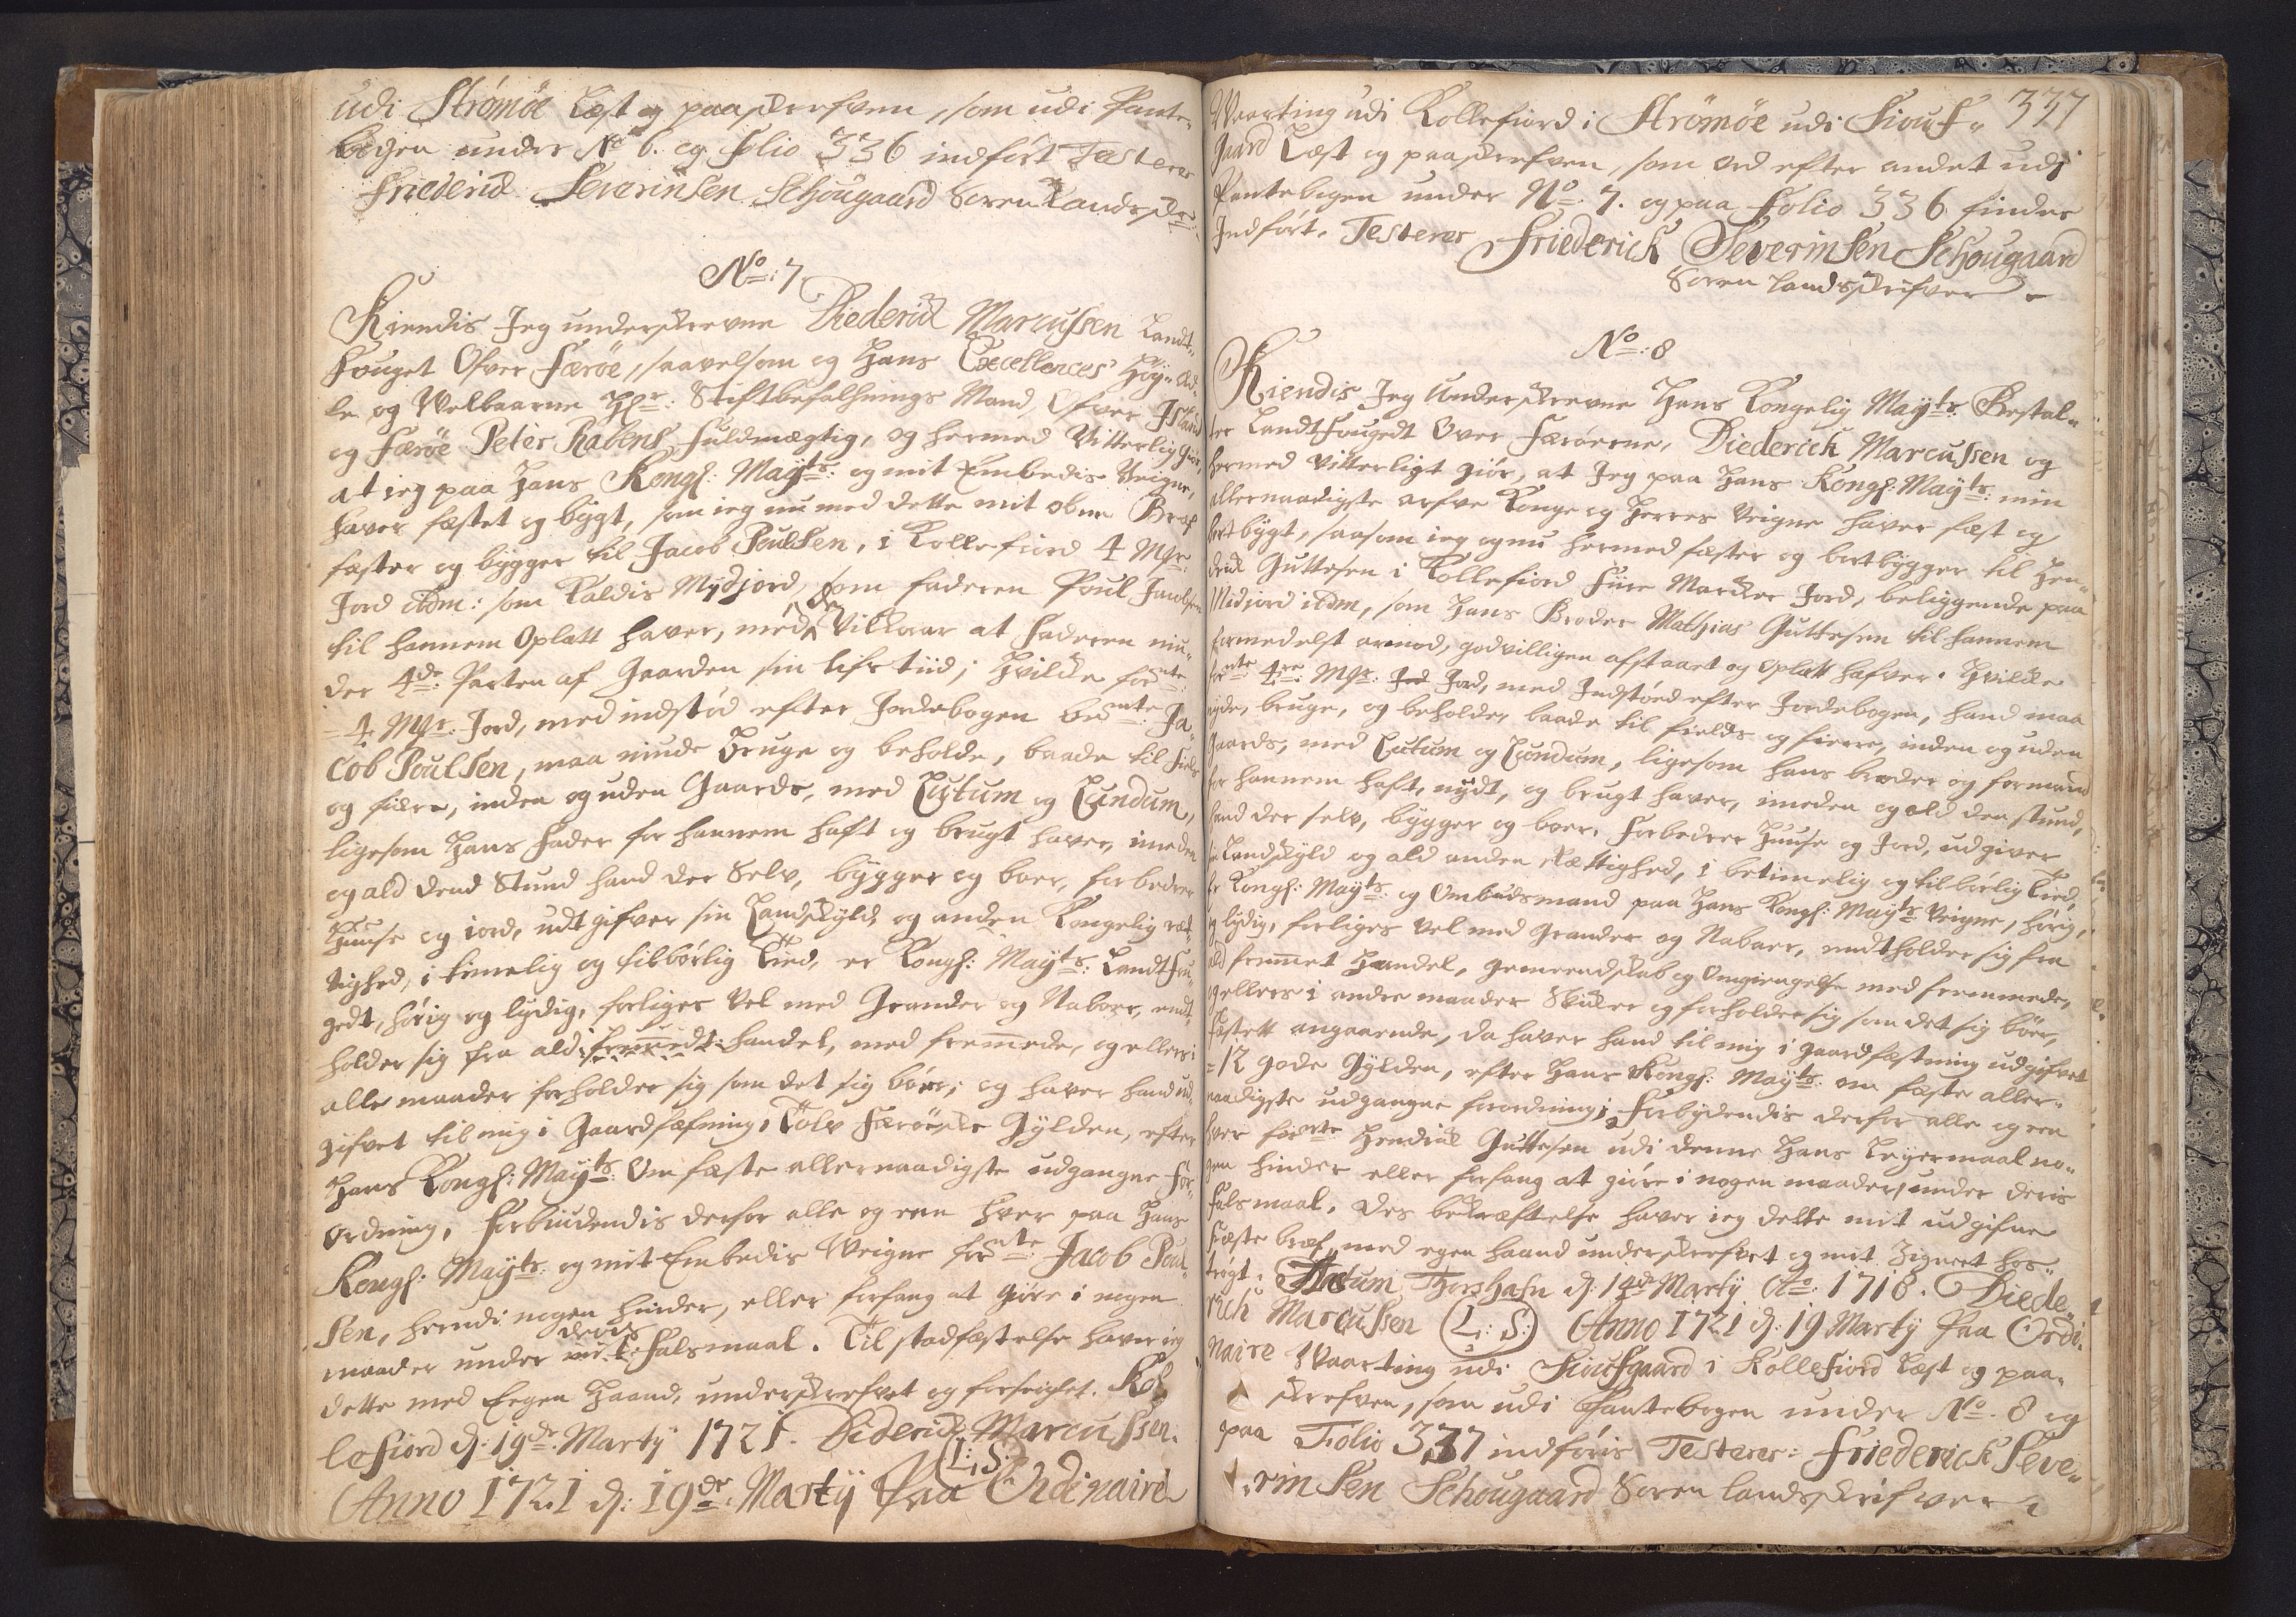 udi Strømöe Læst og paaskrefven, som udi Pante-
bogen under No 6. og folio 336 indført Testerer
Friederick Severinsen Schougaard Soren Landsskr:
No: 7
Kiendis Jeg underskrevne Diederick Marcussen Landt-
fouget Ofver Færöe, saavelsom og Hans Excellences Höy-Æd-
le og Velbaarne Hr: Stiftbefalhnings Mand Ofver Island
og Færöe Peter Rabens fuldmægtig, og hermed Vitterlig giör,
at ieg paa Hans Kongl: Mayts: og mit Embedis Veigne,
haver fæstet og bÿgt, som ieg nu med dette mit obne Bref
fæster og bygger til Jacob Poulsen, i Kollefiord 4 Mr:
Jord ibdm: som Kaldis Mydjord, som faderen Poul Jacobsen
til hannem Opladt haver, med den Vilkaar at Faderen niu-
der 4de Parten af Gaarden sin lifs tiid; Hvilke forntte
4 Mr: Jord, med indstød efter Jordebogen bemte: Ja-
cob Poulsen, maa niude bruge og beholde, baade til field
og fiære, inden og uden Gaards, med Lutum og Lundum,
ligesom Hans Fader for hannem haft og brugt haver, imeden
og ald dend Stund hand der Selv, bygger og boer, forbedrer
Huuse og iord, udtgifver sin Landskyld og anden Kongelig ret-
tighed, i timelig og tilbørlig Tiid, er Kongl: Mayts: Landtfou-
gedt, hörig og lydig, forliges vel med Grander og Naboer, endt-
holder sig fra ald fremedt handel, med fremede, og ellers i
alle maader forholder sig som det sig bör; og haver hand ud-
gifvet til mig i Gaardfæstning, Tolv Færöiske Gylden, efter
Hans Kongl: Mayts: Om fæste allernaadigste udgangne For-
ordning, forbiudendis derfor alle og een hver paa Hans
Kongl: Mayts: og mit Embedis Veigne forntte: Jacob Poul-
sen, herudi nogen hinder, eller forfang at giöre i nogen
maader under deris Falsmaal. Til stadfæstelse haver ieg
dette med Eegen Haand, underskrefvet og forseiglet. Kol-
lefiord d: 19de: Marty 1721. Diderick Marcussen.
(L:S:)
Anno 1721 d: 19de: Martÿ Paa Ordinaire
337
Vaarting udi Kollefiord i Strömöe udi Siouf-
gaard Læst og paaskrefven, som ord efter andet udi
Pantebogen under No: 7. og paa folio 336 findes
Indfört. Testerer Friederick Severinsen Schougaard
Soren Landsskrifver
No: 8
Kiendis Jeg Underskrevne Hans Kongelig Mayts: Bestal-
ter Landtfougedt Over Færöerne, Diederick Marcussen og
hermed vitterligt giör, at Jeg paa Hans Kongl: Mayts: min
allernaadigste arfve Konge og Herres Veigne haver fæst og
bortbygt, saasom ieg og nu hermed fæster og bortbygger til Hen-
drick Guttesen i Kollefiord Fiire Marcker Jord, beliggende paa
Midjord ibdm, som Hans Broder Mathias Guttesen til hannem
formedelst armod, godvilligen afstaaet og Opladt hafver. Hvilke
forntte 4re: Mr: Jord, med Indstöed efter Jordebogen, hand maa
nyde, bruge, og beholde, baade til fields og fierre, inden og uden
Gaards, med Lutum og Lundum, ligesom hans broder og formand
for hannem haft, nydt, og brugt haver, imeden og ald den stund,
hand der selv, bygger og boer. Forbedrer Huuse og Jord, udgiver
sin Landskyld og ald anden Rættighed, i betimelig og tilbörlig Tiid,
er Kongl: Mayts: og Ombudsmand paa Hans Kongl: Mayts: Veigne, hörig
og lydig, forliges vel med Grander og Naboer, endtholder sig fra
ald fremmet Handel, gemeendskab og Omgiengelse med fremmede,
og ellers i andre maader Skicker og forholder sig som det sig bör,
Fæstett angaaende, da haver hand til mig i Gaardfæstning udgifvet
=12 gode Gylden, efter Hans Kongl: Mayts: om fæste aller-
naadigste udgangne forordning; Forbydendis derfor alle og een
hver forntte Hendrick Guttesen udi denne Hans Leyermaal no-
gen hinder eller forfang at giöre i nogen maader, under deris
Falsmaal. Des bekræftelse haver ieg dette mit udgifne
Fæste bref med egen haand underskrefvet og mit Zignet hos-
trögt. Datum Thorshafn d: 14de Marty Ao: 1718. Diede-
rich Marcussen (L:S:) Anno 1721 d: 19 Marty Paa Ordi-
naire Vaarting udi Sioufgaard i Kollefiord Læst og paa-
skrefven, som udi Pantebogen under No. 8 og
paa Folio 337 indföris Testerer: Friederick Seve-
rinsen Schougaard Soren Landsskrifver